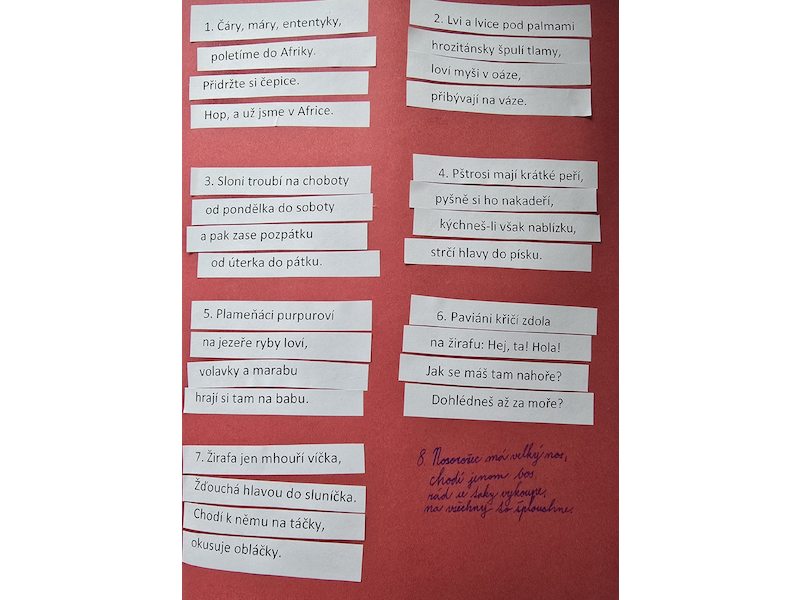 1. Čáry, máry, ententyky,
poletíme do Afriky.
Přidržte si čepice.
Hop, a už jsme v Africe.
2. Lvi a lvice pod palmami
hrozitánsky špulí tlamy,
loví myši v oáze,
přibývají na váze.
3. Sloni troubí na choboty
od pondělka do soboty
a pak zase pozpátku
od úterka do pátku.
4. Pštrosi mají krátké peří,
pyšně si ho nakadeří,
kýchneš-li však nablízku,
strčí hlavy do písku.
5. Plameňáci purpuroví
na jezeře ryby loví,
volavky a marabu
hrají si tam na babu.
6. Paviáni křičí zdola
na žirafu: Hej, ta! Hola!
Jak se máš tam nahoře?
Dohlédneš až za moře?
7. Žirafa jen mhouří víčka,
Žďouchá hlavou do sluníčka.
Chodí k němu na táčky,
okusuje obláčky.
8. Nosorožec má velký nos,
chodí jenom bos
rád se taky vykoupe,
na všechny to šplouchne.